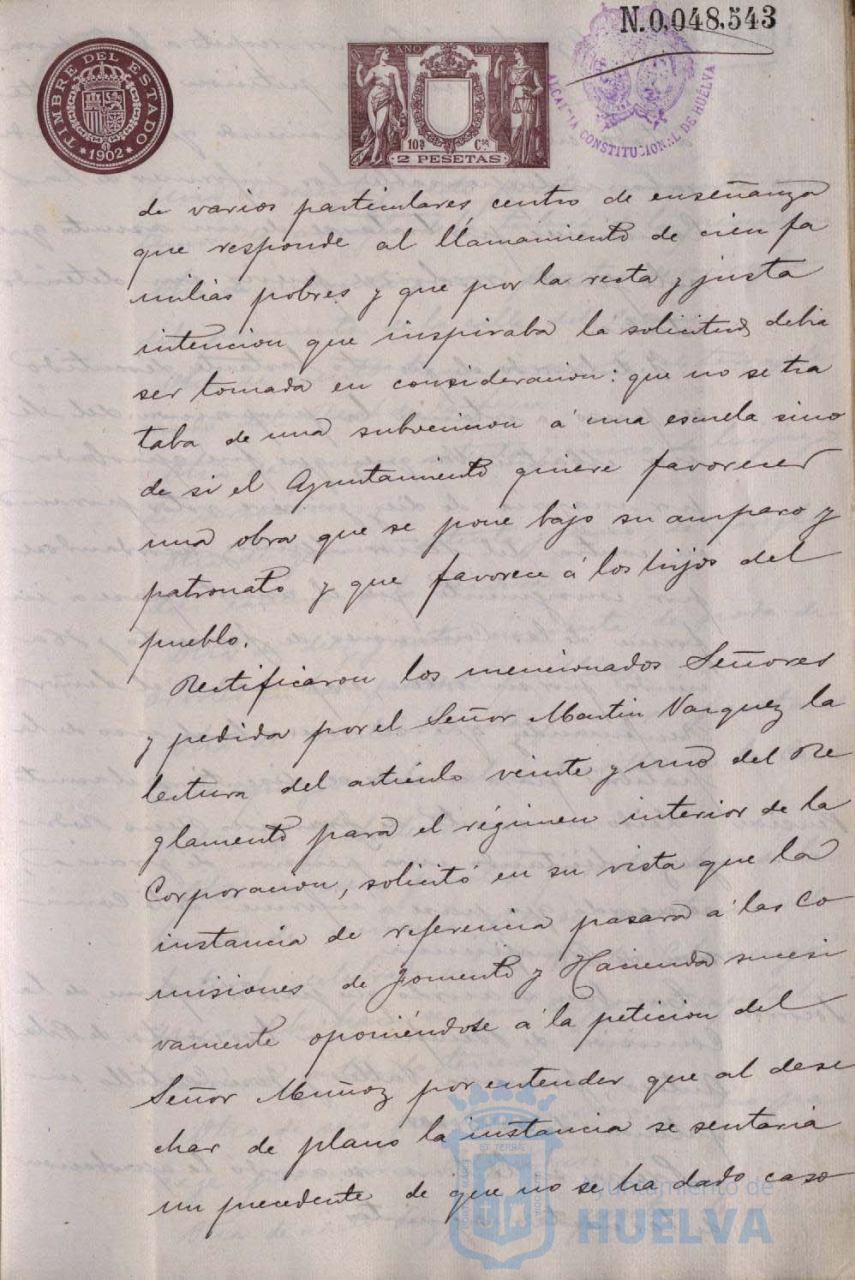 N.0,048,543
TIMBRE DEL ESTADO
*1902*
AÑO 1902
10ª Cª
2 PESETAS
ALCALDIA CONSTITUCIONAL DE HUELVA
de varios particulares centro de enseñanza
que responde al llamamiento de cien fa
milias pobres y que por la recta y justa
intencion que inspiraba la solicitud debia
ser tomada en consideracion: que no se tra
taba de una subvencion á una escuela sino
de si el Ayuntamiento quiere favorecer
una obra que se pone bajo su amparo y
patronato y que favorece á los hijos del
pueblo.
Rectificaron los mencionados Señores
y pedida por el Señor Martin Vazquez la
lectura del artículo veinte y uno del Re
glamento para el régimen interior de la
Corporacion, solicitó en su vista que la
instancia de referencia pasara á las Co
misiones de Fomento y Hacienda sucesi
vamente oponiéndose á la peticion del
Señor Muñoz por entender que al dese
char de plano la instancia se sentaria
un precedente de que no se ha dado caso
Ayuntamiento de
HUELVA